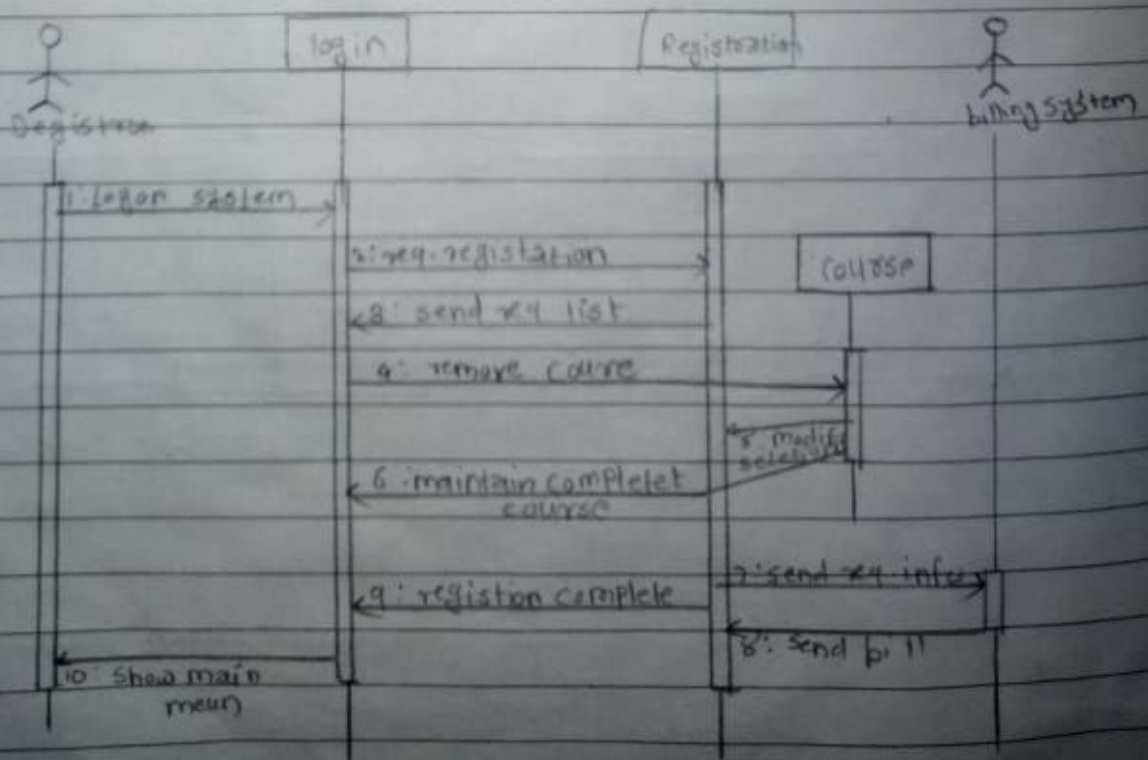 login
Registration
Degistron
billing system
1: Logon system
2: req. registation
course
3: send rq list
4: remove coure
5 modify
6 : maintain completet
course
7: send rq. info
9 : registion complete
8: send bill
10: show main
meun